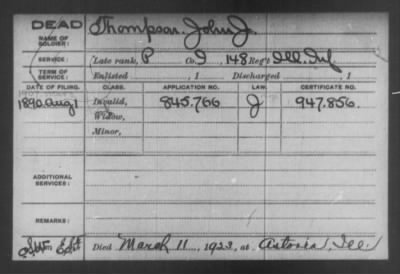 DEAD
NAME OF SOLDIER: Thompson, John J.
SERVICE: Late rank, P Co. I, 148 Reg't Ill. Inf.
TERM OF SERVICE: Enlisted , 1 Discharged , 1
DATE OF FILING. CLASS. APPLICATION NO. LAW. CERTIFICATE NO.
1890 Aug 1 Invalid, 845.766 J 947.856.
Widow,
Minor,
ADDITIONAL SERVICES:
REMARKS:
Died March 11, 1923, at Astoria, Ill.